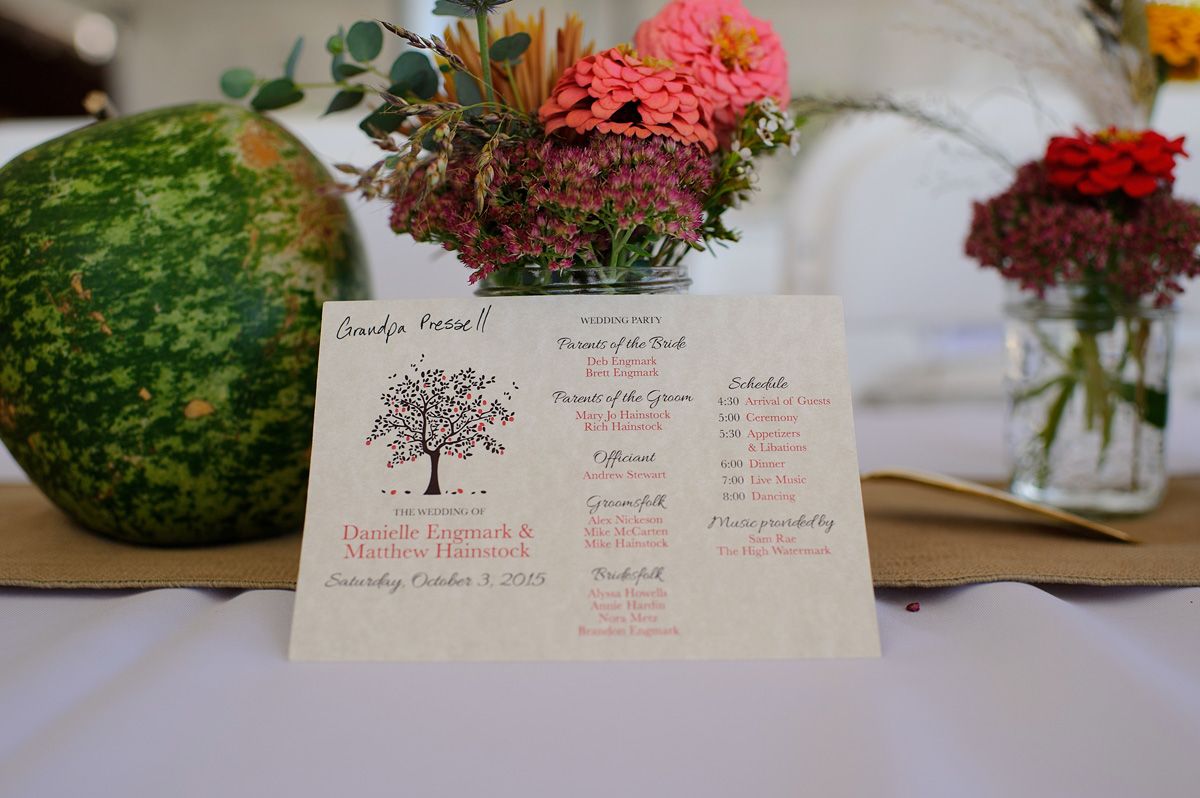 Grandpa Pressell
THE WEDDING OF
Danielle Engmark &
Matthew Hainstock
Saturday, October 3, 2015
WEDDING PARTY
Parents of the Bride
Deb Engmark
Brett Engmark
Parents of the Groom
Mary Jo Hainstock
Rich Hainstock
Officiant
Andrew Stewart
Groomsfolk
Alex Nickeson
Mike McCarten
Mike Hainstock
Bridesfolk
Alyssa Howells
Annie Hardin
Nora Metz
Brandon Engmark
Schedule
4:30 Arrival of Guests
5:00 Ceremony
5:30 Appetizers
& Libations
6:00 Dinner
7:00 Live Music
8:00 Dancing
Music provided by
Sam Rae
The High Watermark